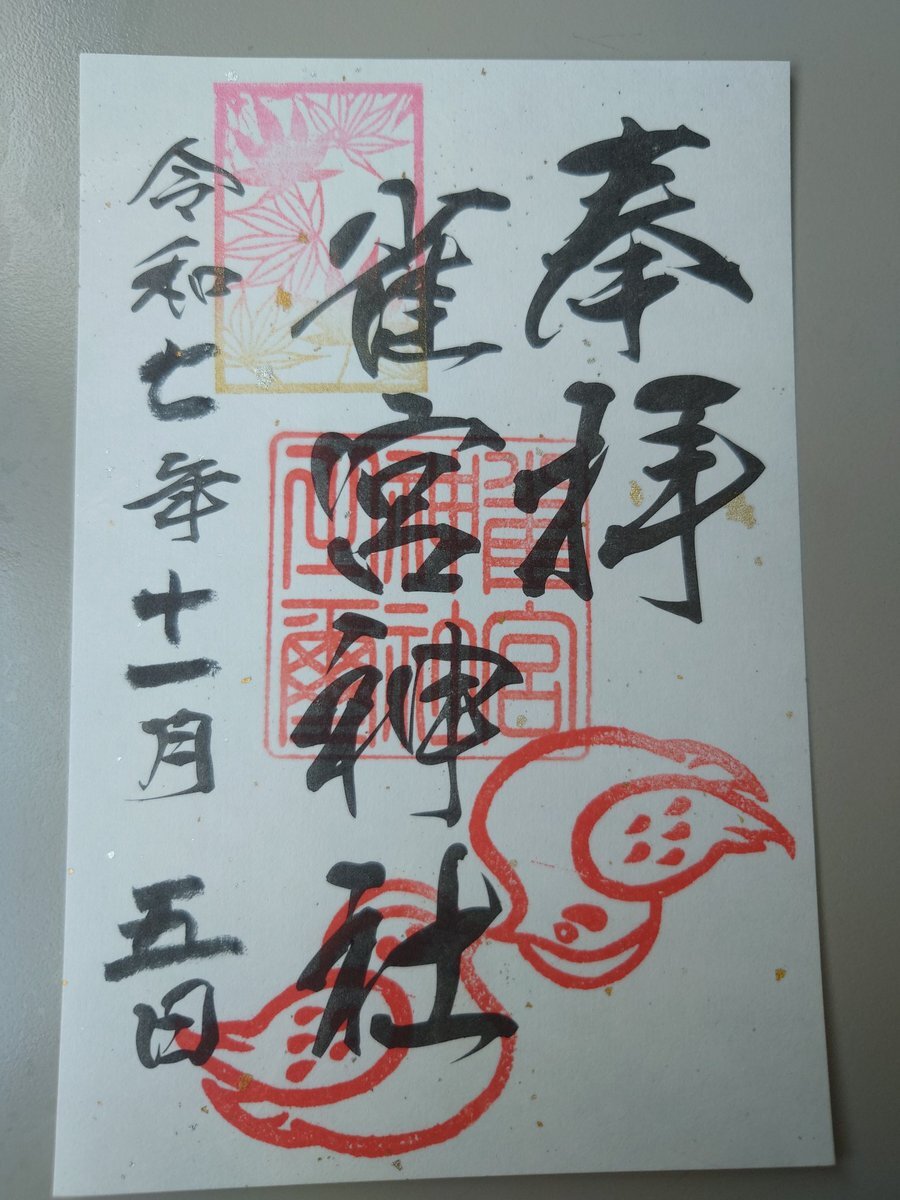 奉拝
雀宮神社
雀宮
神社
令和七年十一月五日